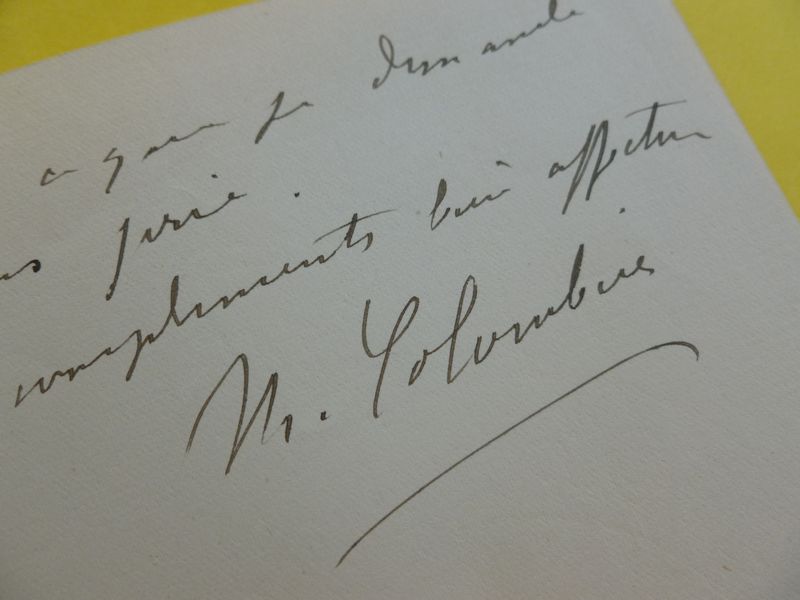 ce que je demande
prie.
compliments bien affectu
M. Colombier